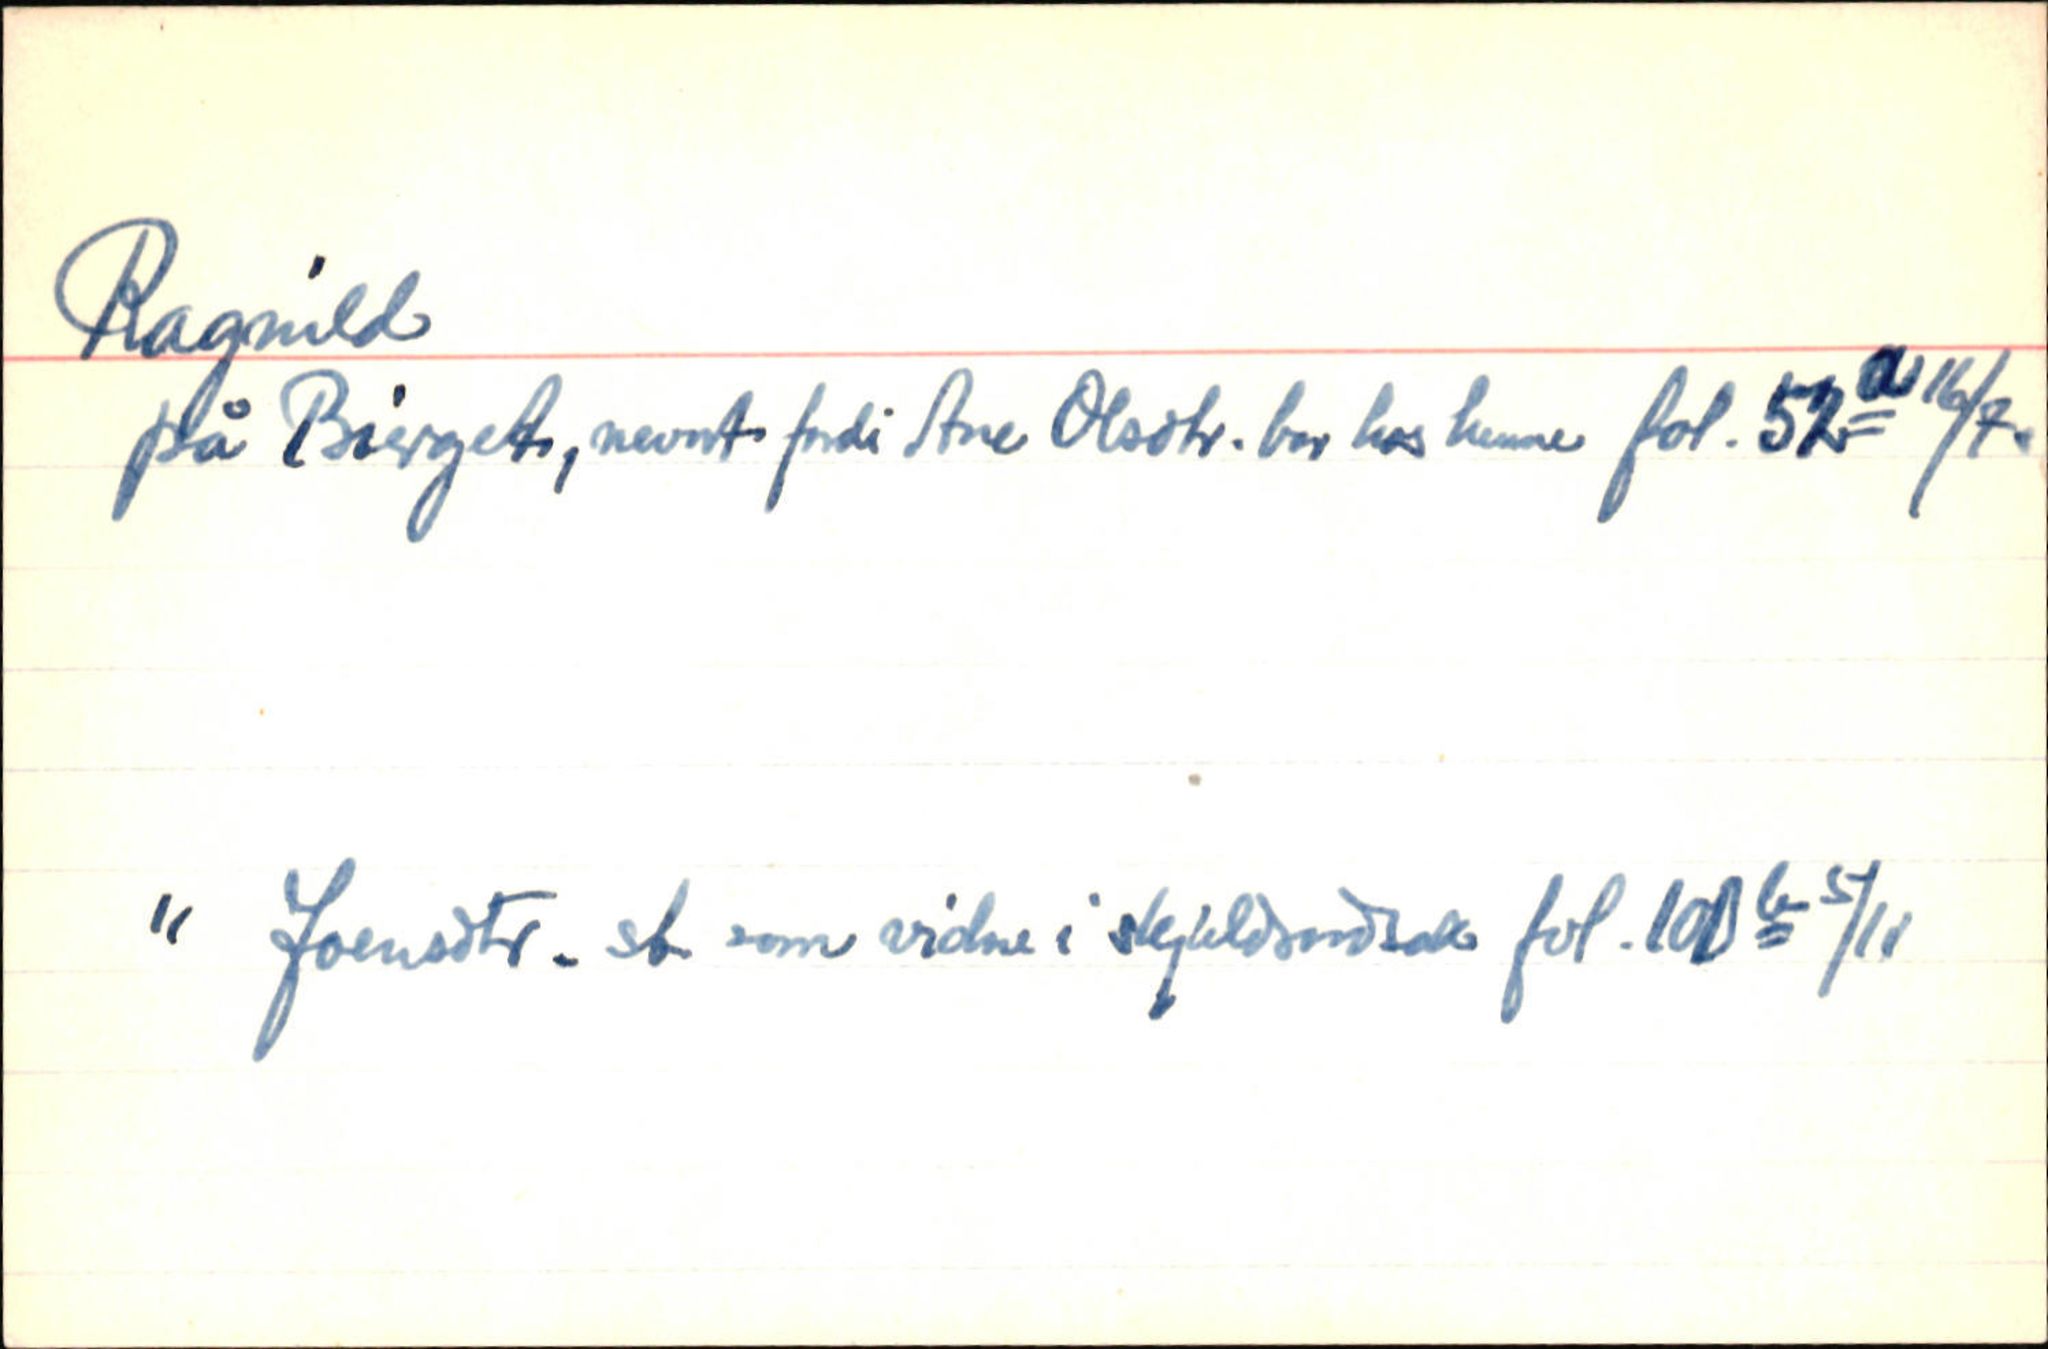 Ragnild
på Bierget, nevnt fordi Ane Olsdtr. bor hos henne fol. 52a 16/7.
" Joensdtr. st. som vidne i skjeldsordsak fol. 101b 5/11